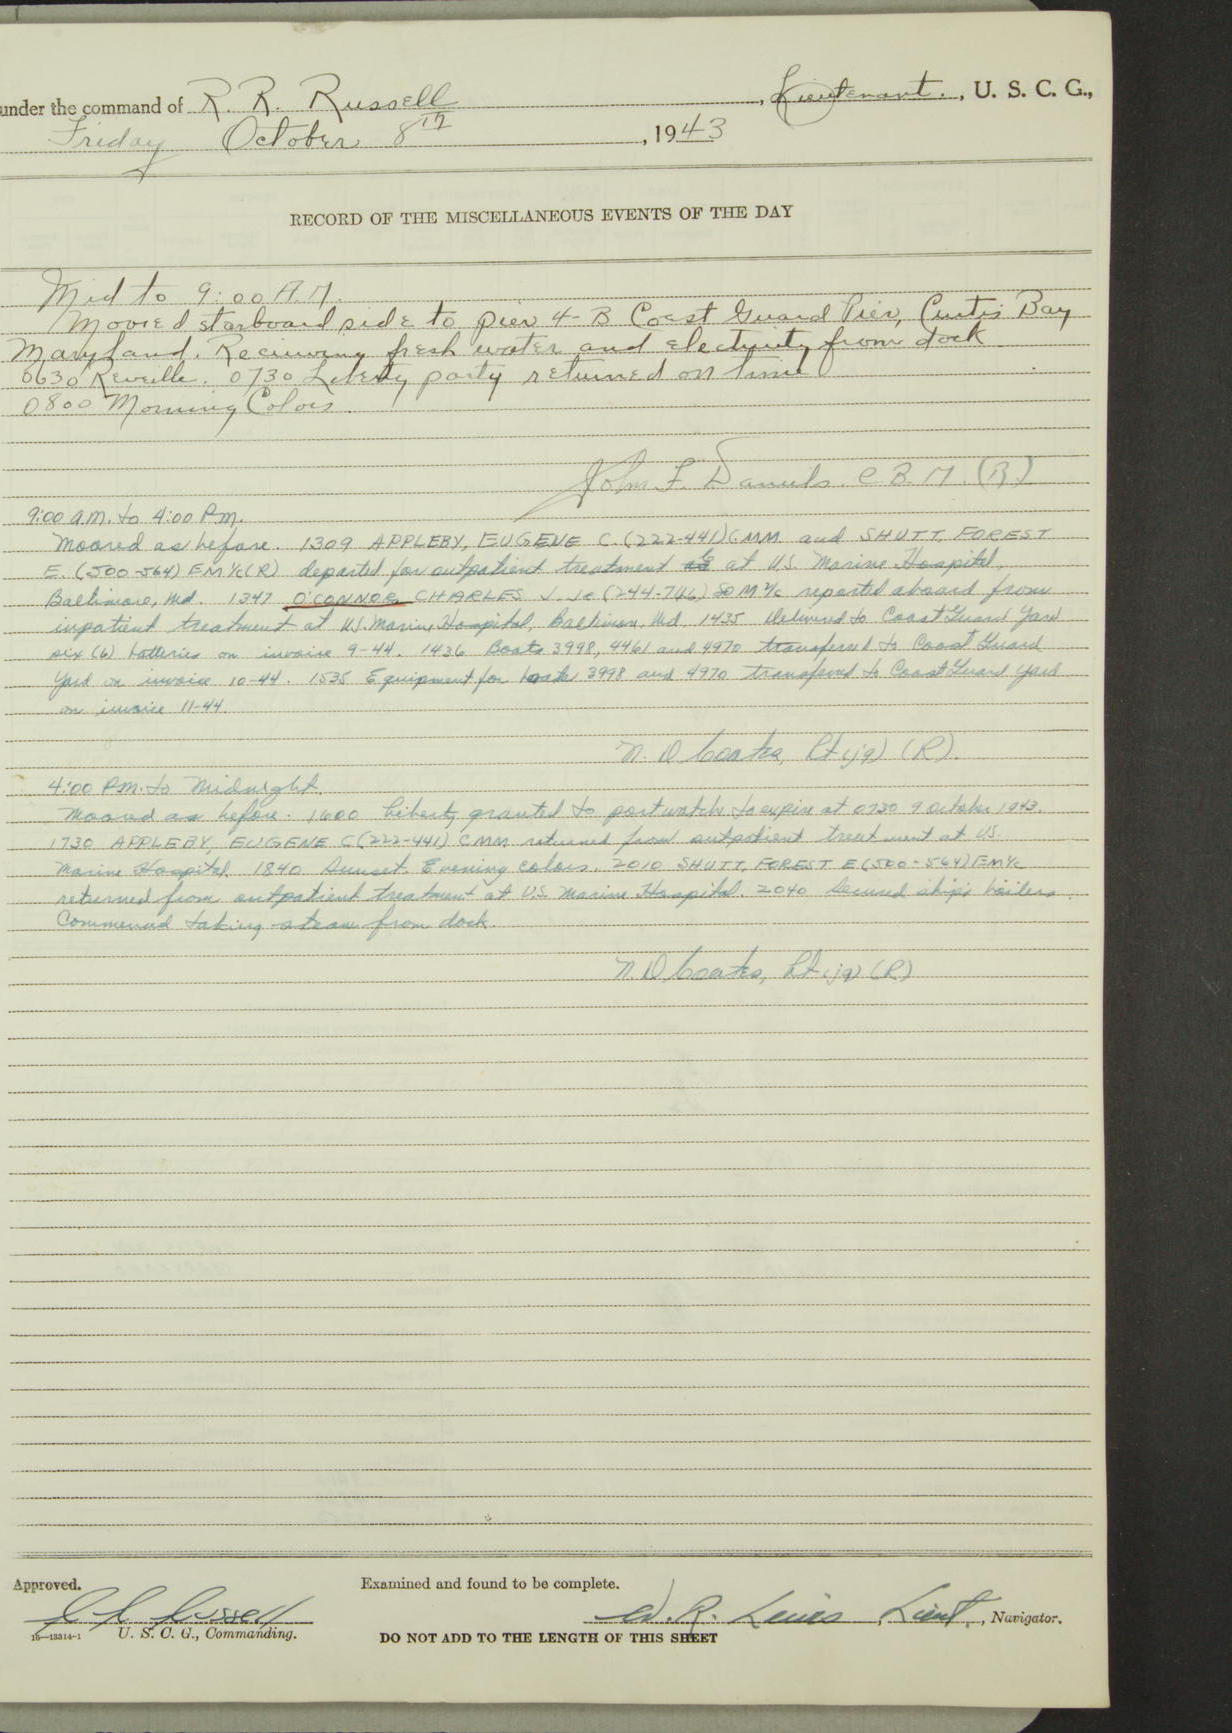 under the command of R. R. Russell, Lieutenant., U. S. C. G.,
Friday October 8th, 1943
RECORD OF THE MISCELLANEOUS EVENTS OF THE DAY
Mid to 9:00 A.M.
Moored starboard side to pier 4-B Coast Guard Pier, Curtis Bay
Maryland. Receiving fresh water and electricity from dock
0630 Reveille. 0730 Liberty party returned on time
0800 Morning Colors.
John F. Daniels. C.B.M. (R)
9:00 a.m. to 4:00 P.m.
Moored as before. 1309 APPLEBY, EUGENE C. (222-441) CMM and SHUTT, FOREST
E. (500-564) EM2/c(R) departed for outpatient treatment at U.S. Marine Hospital,
Baltimore, Md. 1347 O'CONNOR CHARLES J. Jr. (244-746) SoM2/c reported aboard from
inpatient treatment at U.S. Marine Hospital, Baltimore, Md. 1435 Delivered to Coast Guard Yard
six (6) batteries on invoice 9-44. 1436 Boats 3998, 4461 and 4970 transferred to Coast Guard
Yard on invoice 10-44. 1535 Equipment for boats 3998 and 4970 transferred to Coast Guard Yard
on invoice 11-44.
N. D Coates, Lt (jg) (R).
4:00 P.m. to Midnight.
Moored as before. 1600 Liberty granted to port watch to expire at 0730 9 October 1943.
1730 APPLEBY, EUGENE C (222-441) CMM returned from outpatient treatment at U.S.
Marine Hospital. 1840 Sunset. Evening colors. 2010 SHUTT, FOREST E (500-564) EM2/c
returned from outpatient treatment at U.S. Marine Hospital. 2040 Secured ship's boilers.
Commenced taking steam from dock.
N. D Coates, Lt (jg) (R)
Approved. Examined and found to be complete.
R R Russell W. R. Lewis, Lieut., Navigator.
16—13314-1 U. S. C. G., Commanding. DO NOT ADD TO THE LENGTH OF THIS SHEET